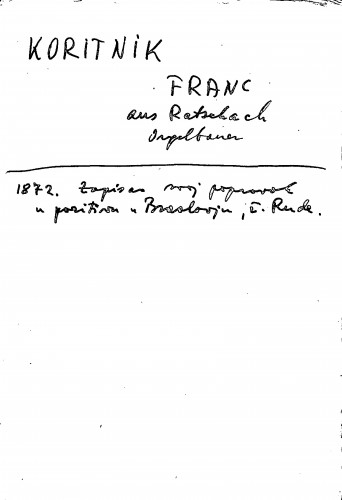 KORITNIK
FRANC
aus Ratschach
Orgelbauer
1872. Zapisan svoj popravak
u pozitivu u Braslovju, ž. Rude.